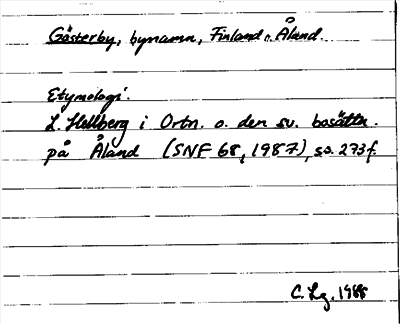 Gösterby, bynamn, Finland, Åland.
Etymologi:
L. Hellberg i Ortn. o. den sv. bosättn.
på Åland (SNF 68, 1987), ss. 273 f.
C. Lg. 1988